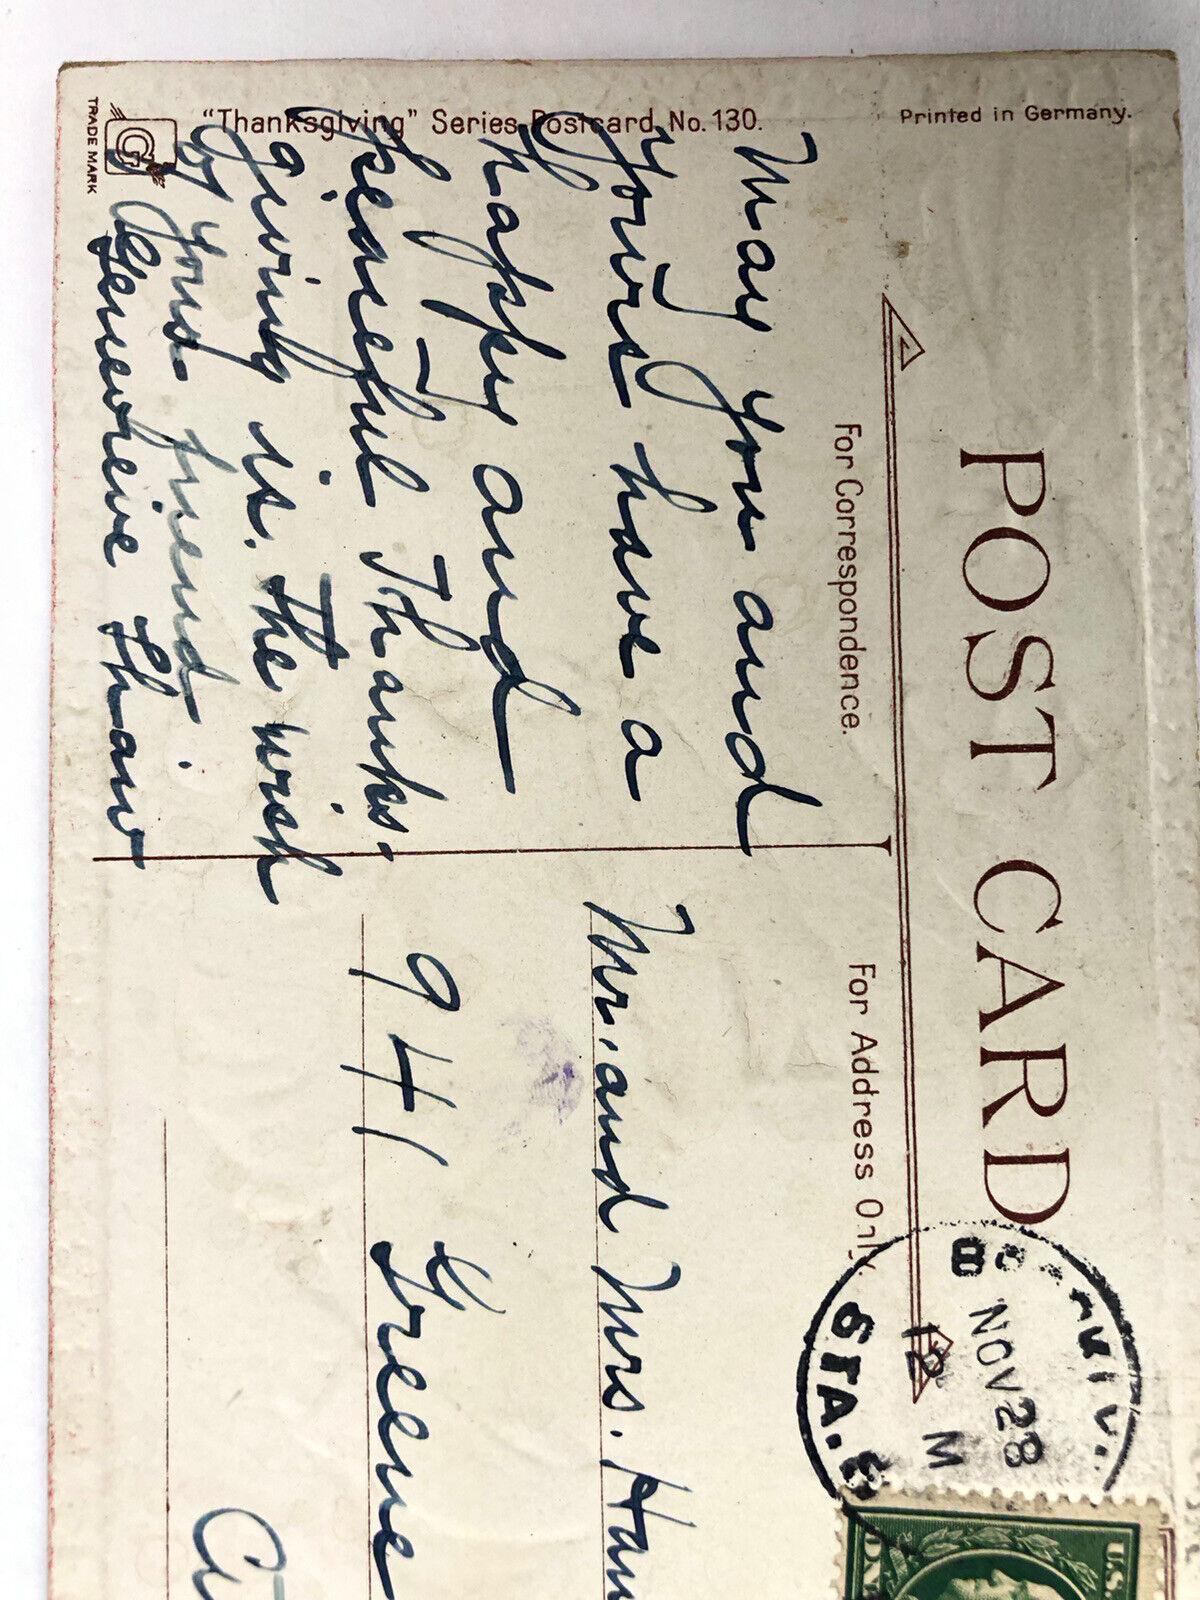 "Thanksgiving" Series Postcard No. 130.
Printed in Germany.
TRADE MARK
G
POST CARD
For Correspondence.
For Address Only.
May you and
yours have a
happy and
peaceful Thanks-
giving is. the wish
of your friend.
Genevieve Shaw
Mr. and Mrs. Han
941 Greene
NOV 28
12 M
STA.
U.S.